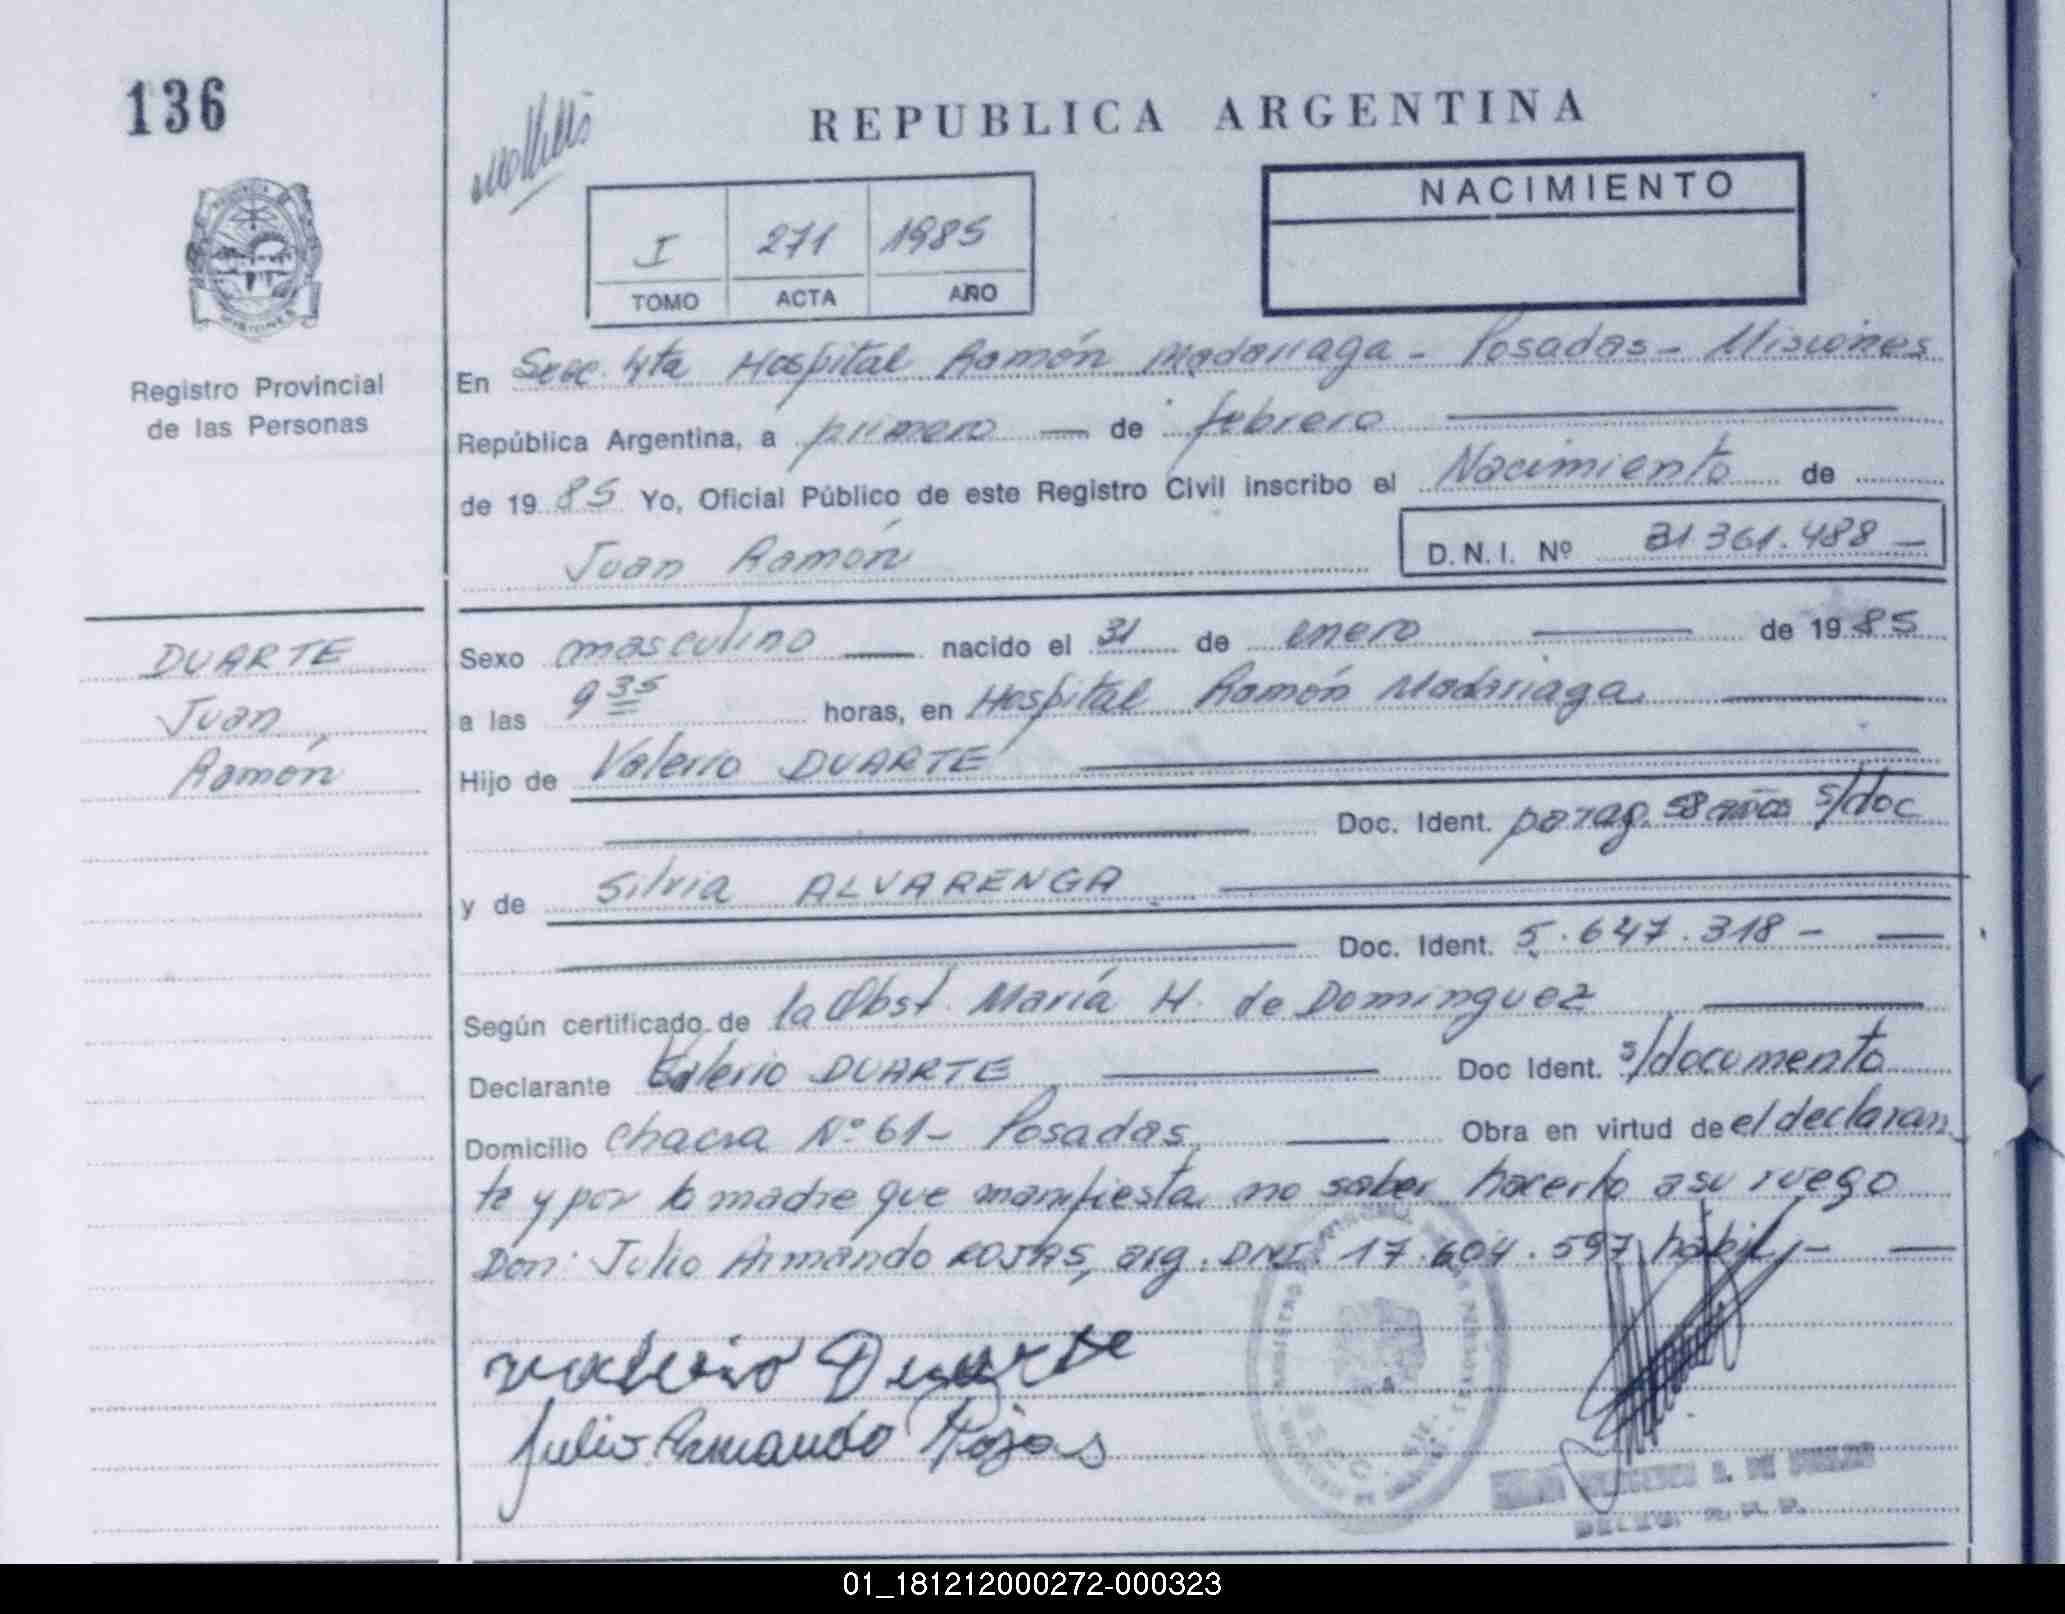 136
REPUBLICA ARGENTINA
NACIMIENTO
I 271 1985
TOMO ACTA AÑO
Registro Provincial
de las Personas
En Secc. 4ta Hospital Ramón Madariaga - Posadas - Misiones
República Argentina, a primero — de febrero
de 1985 Yo, Oficial Público de este Registro Civil inscribo el Nacimiento de
Juan Ramón D.N.I. Nº 31.361.488 —
DUARTE
Juan
Ramón
Sexo masculino — nacido el 31 de enero — de 1985
a las 9 35 horas, en Hospital Ramón Madariaga
Hijo de Valerio DUARTE
Doc. Ident. parag. 58 años s/doc
y de Silvia ALVARENGA
Doc. Ident. 5.647.318 -
Según certificado de la Obst. María H. de Dominguez
Declarante Valerio DUARTE Doc Ident. s/documento
Domicilio chacra Nº 61 - Posadas Obra en virtud de el declaran
te y por la madre que manifiesta no saber hacerlo a su ruego
Don: Julio Armando ROJAS, arg. DNI. 17.604.597, hábil, -
Valerio Duarte
Julio Armando Rojas
01_181212000272-000323